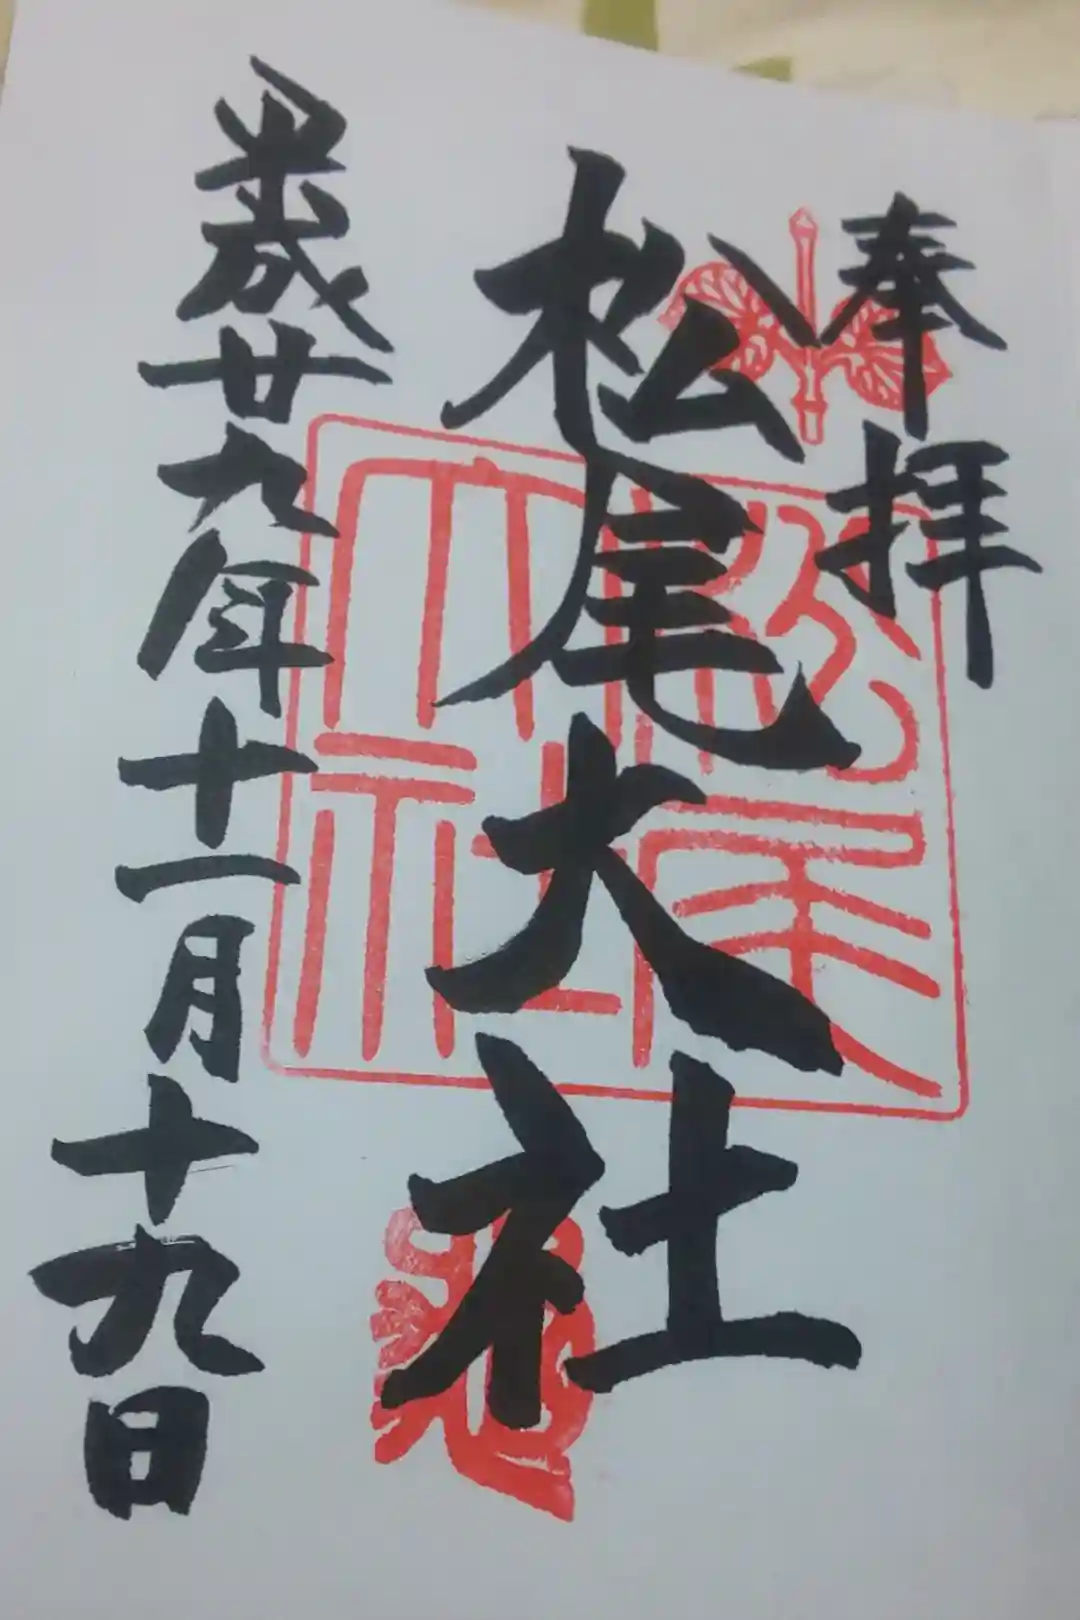 奉拝
松尾大社
平成廿九年十一月十九日
松尾大社